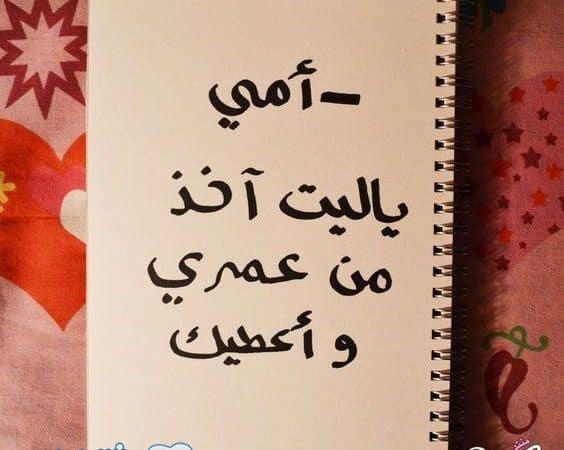 – أمي
ياليت آخذ
من عمري
و أعطيك